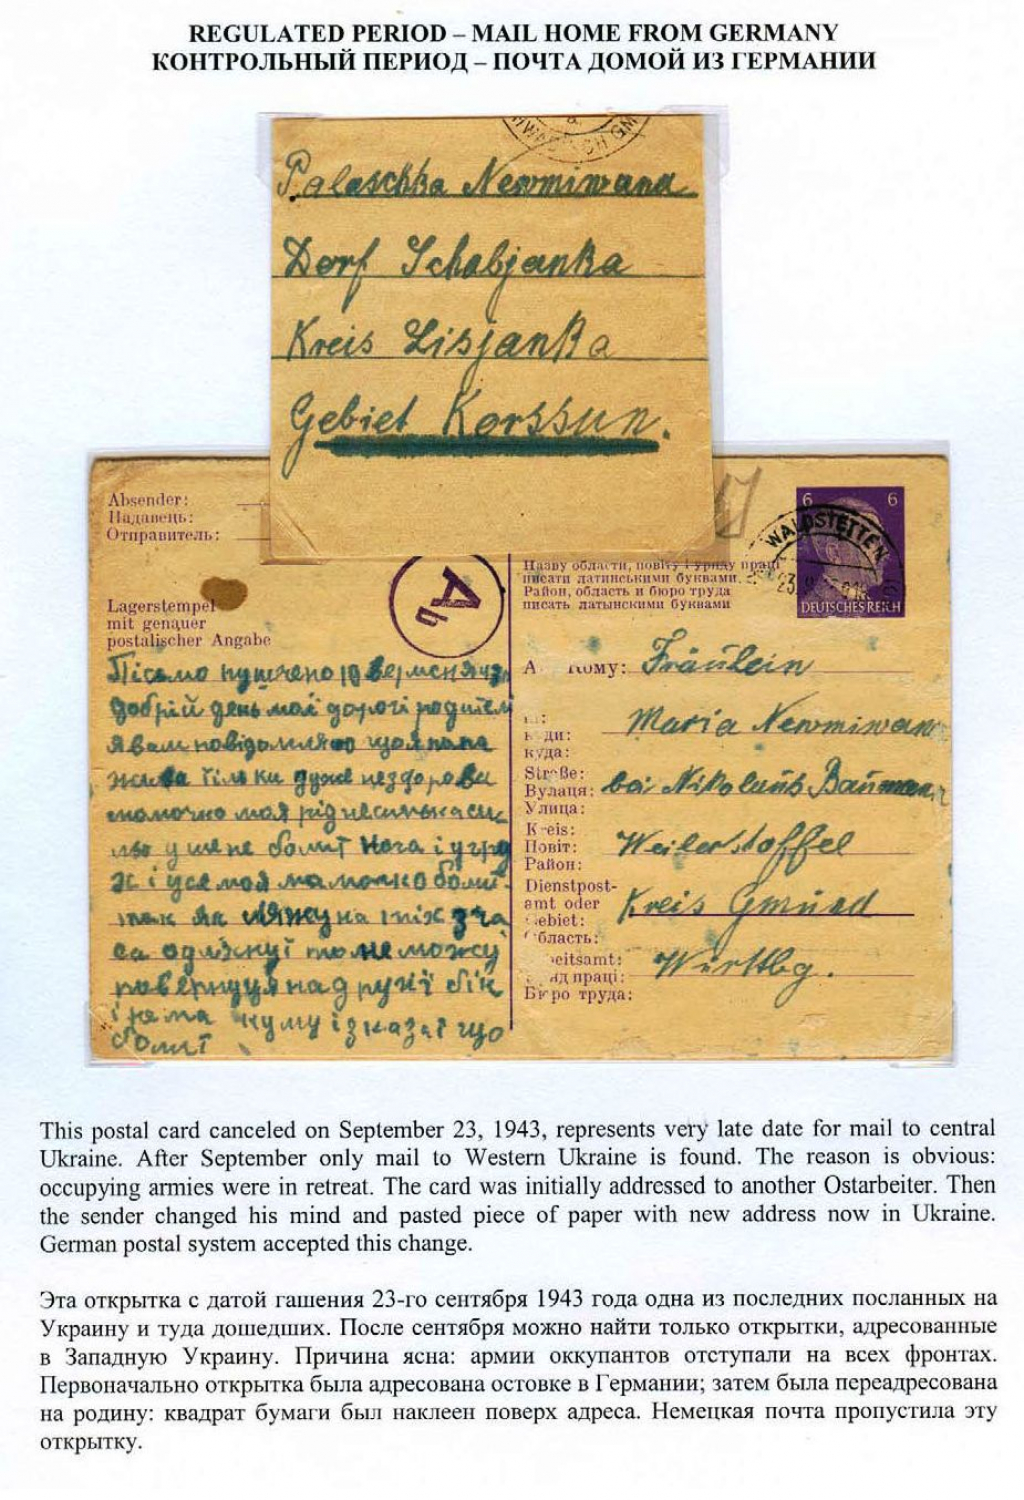 REGULATED PERIOD – MAIL HOME FROM GERMANY
КОНТРОЛЬНЫЙ ПЕРИОД – ПОЧТА ДОМОЙ ИЗ ГЕРМАНИИ
Palaschka Newmiwana
Dorf Schabjanka
Kreis Lisjanka
Gebiet Korssun.
Absender:
Надавець:
Отправитель:
Lagerstempel
mit genauer
postalischer Angabe
Ab
6 6
WALDSTETTEN
23.
DEUTSCHES REICH
Назву области, повіту і уряду праці
писати латинськими буквами.
Район, область и бюро труда
писать латынскими буквами
Пісьмо пущено 19 вермсня
добрій день мої дорогі родител
я вам повідомляю що я
жива тільки дуже нездорова
мамочко моя рідне
у мене болит нога і
і уся моя мамочко болит
так як ляжу на
то не можу
на другиї бік
і нема кому ізказаї що
болиї
кому: Fräulein
Maria Newmiwana
куда:
Straße:
Вулаця: bei Nikolaus Baumann
Улица:
Kreis:
Повіт: Weilerstoffel
Район:
Dienstpost-
amt oder Kreis Gmünd
Gebiet:
Область:
Arbeitsamt: Württbg.
праці:
Бюро труда:
This postal card canceled on September 23, 1943, represents very late date for mail to central
Ukraine. After September only mail to Western Ukraine is found. The reason is obvious:
occupying armies were in retreat. The card was initially addressed to another Ostarbeiter. Then
the sender changed his mind and pasted piece of paper with new address now in Ukraine.
German postal system accepted this change.
Эта открытка с датой гашения 23-го сентября 1943 года одна из последних посланных на
Украину и туда дошедших. После сентября можно найти только открытки, адресованные
в Западную Украину. Причина ясна: армии оккупантов отступали на всех фронтах.
Первоначально открытка была адресована остовке в Германии; затем была переадресована
на родину: квадрат бумаги был наклеен поверх адреса. Немецкая почта пропустила эту
открытку.